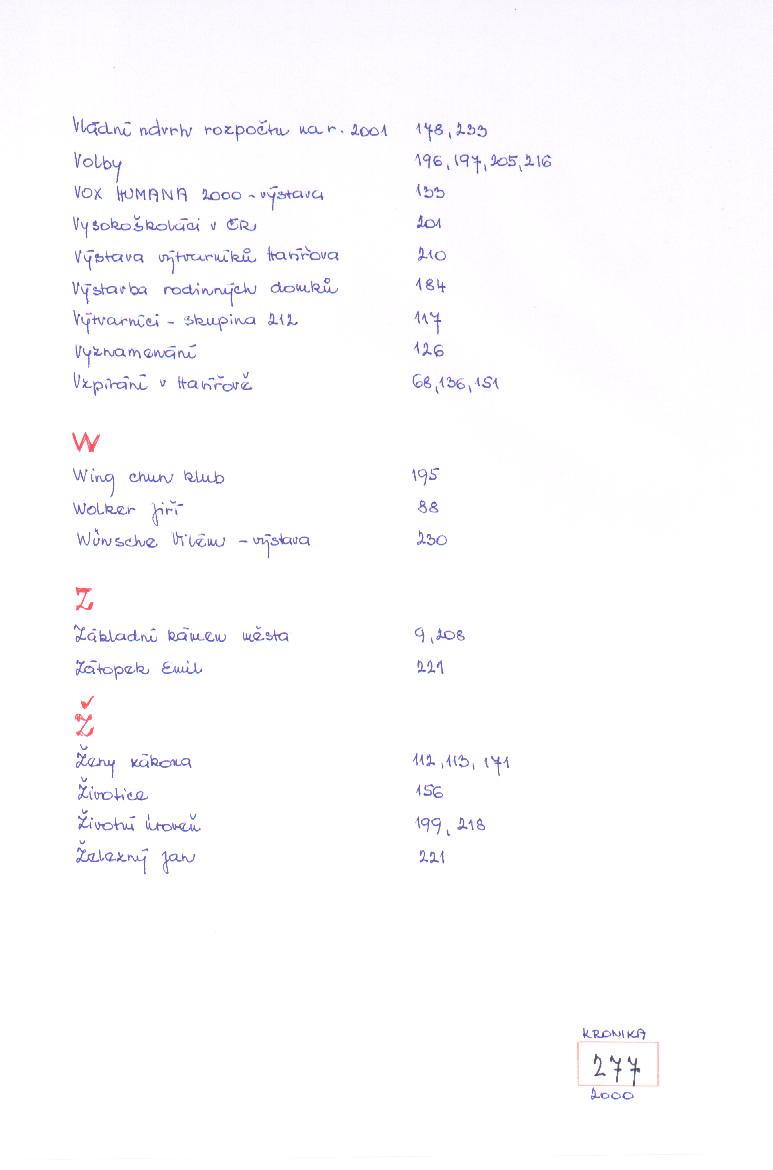 Vládní návrh rozpočtu na r. 2001 178, 233
Volby 196, 197, 205, 216
VOX HUMANA 2000 - výstava 133
Vysokoškoláci v ČR 201
Výstava výtvarníků Havířova 210
Výstavba rodinných domků 184
Výtvarníci - skupina 212 117
Vyznamenání 126
Vzpírání v Havířově 68, 136, 151
W
Wing chun klub 195
Wolker Jiří 88
Wünsche Vilém - výstava 230
Z
Základní kámen města 9, 208
Zátopek Emil 221
Ž
Ženy zákona 112, 113, 171
Životice 156
Životní úroveň 199, 218
Železný Jan 221
KRONIKA
277
2000